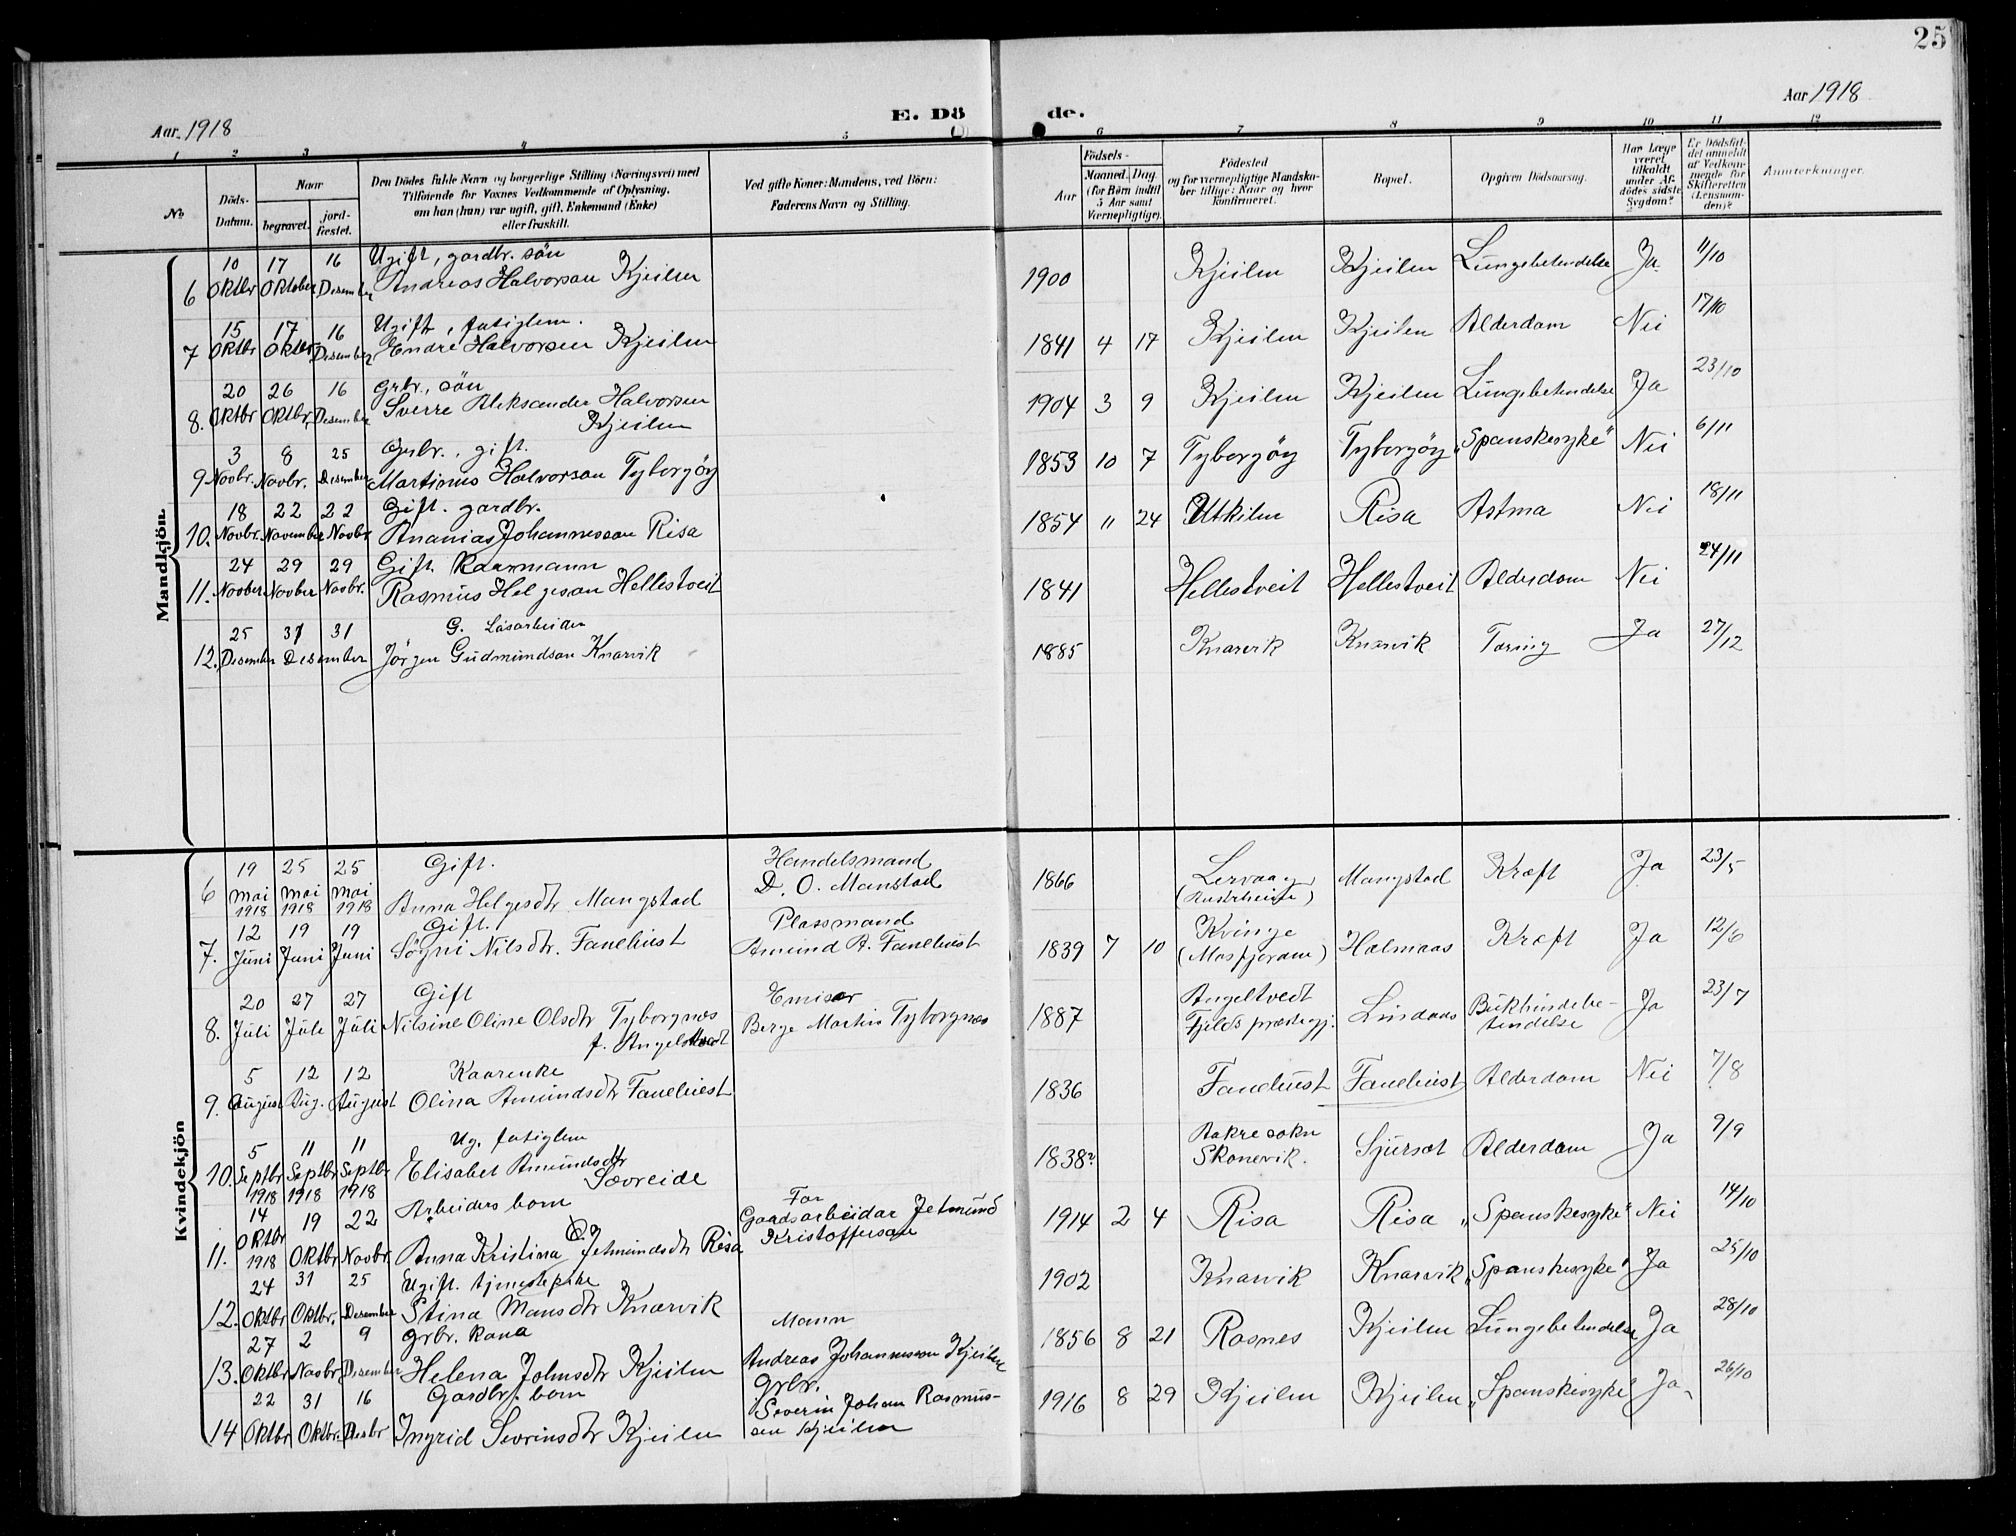 25
Aar 1918
E. Dö
de.
Aar 1918
1 2 3 4 5 6 7 8 9 10 11 12
No
Döds-Datum.
Naar
begravet.
jord-fæstet.
Den Dödes fulde Navn og borgerlige Stilling (Næringsvei) med
Tilföiende for Voxnes Vedkommende af Oplysning,
om han (hun) var ugift, gift, Enkemand (Enke)
eller fraskilt.
Ved gifte Koner: Mandens, ved Börn:
Faderens Navn og Stilling.
Födsels-
Aar
Maaned. Dag.
(for Börn indtil
5 Aar samt
Værnepligtige).
Födested
og for værnepligtige Mandska-
ber tillige: Naar og hvor
konfirmeret.
Bopæl.
Opgiven Dödsaarsag.
Har Læge
været
tilkaldt
under Af-
dödes sidste
Sygdom?
Er Dödsfal-
det anmeldt
af Vedkom-
mende for
Skifteretten
(Lensman-
den)?
Anmerkninger.
Mandkjön.
10 17 16 Ugift, gardbr. sön
6 Oktbr Oktober Desember Andreas Halvorsan Kjeilen 1900 Kjeilen Kjeilen Lungebetendelse Ja 11/10
15 17 16 Ugift, fatiglem.
7 Oktbr Oktbr Desember Endre Halvorsen Kjeilen 1841 4 17 Kjeilen Kjeilen Alderdom Nei 17/10
20 26 16 Grbr., sön
8. Oktbr Oktbr. Desember Sverre Aleksander Halvorsen 1904 3 9 Kjeilen Kjeilen Lungebetendelse Ja 23/10
Kjeilen
3 8 25 Grbr., gift.
9 Novbr. Novbr. Desember Martinus Halvorsan Tyborgöy 1853 10 7 Tyborgöy Tyborgöy „Spanskesyke" Nei 6/11
18 22 22 Gift. gardbr.
10. Novbr. November Novbr Ananias Johannessan Risa 1854 11 24 Utkilen Risa Astma Nei 18/11
24 29 29 Gift. Kaarmann
11. Novber Novber Novbr. Rasmus Helgesan Hellestveit 1841 Hellestveit Hellestveit Alderdom Nei 24/11
25 31 31 G. Lösarbeider
12. Desember Desember Jörgen Gudmundsan Knarvik 1885 Knarvik Knarvik Taring Ja 27/12
Kvindekjön
19 25 25 Gift. Handelsmand
6 mai mai mai Anna Helgesdtr Mangstad D. O. Manstad 1866 Lervaag Mangstad Kræft Ja 23/5
1918 1918 1918 (Austrheim)
12 19 19 Gift. Plassmand
7. Juni Juni Juni Sögni Nilsdtr. Fanehust Amund A. Fanehust 1839 7 10 Kvinge Halmaas Kræft Ja 12/6
(Masfjorden)
20 27 27 Gift Emisær
8. Juli Juli Juli Nilsine Oline Olsdtr Tyborgnes Berge Martin Tyborgnes 1887 Angeltvedt Lindaas Bukhindebe- Ja 23/7
f. Angeltvedt Fjelds præstegj. tendelse
5 12 12 Kaarenke
9. August Aug. August Olina Amundsdtr Fanehust 1836 Fanehust Fanehust Alderdom Nei 7/8
5 11 11 Ug. fatiglem
10. Septbr Septbr Septbr Elisabet Amundsdtr 1838? Aakre sokn Sjurset Alderdom Ja 9/9
1918 1918 1918 Sævreide Skonevik.
14 19 22 Arbeiders born Far
Oktbr Gaardsarbeidar Jetmund
11. 1918 Oktbr Novbr. Anna Kristina Jetmundsdtr Risa Kristoffersan 1914 2 4 Risa Risa „Spanskesyke" Nei 14/10
24 31 25 Ugift. tjenestepike
12. Oktbr Oktbr. Desember Stina Mansdtr Knarvik 1902 Knarvik Knarvik „Spanskesyke" Ja 25/10
27 2 9 grbr. kona Mann
13. Oktbr Novbr. Desember Helena Johnsdtr Kjeilen Andreas Johannessan Kjeilen 1856 8 21 Rosnes Kjeilen Lungebetendelse Ja 28/10
22 31 16 Gardbr. born Grbr.
14 Oktbr Oktbr. Desbr Ingrid Sevrinsdtr Kjeilen Severin Johan Rasmus- 1916 8 29 Kjeilen Kjeilen „Spanskesyke" Ja 26/10
sen Kjeilen